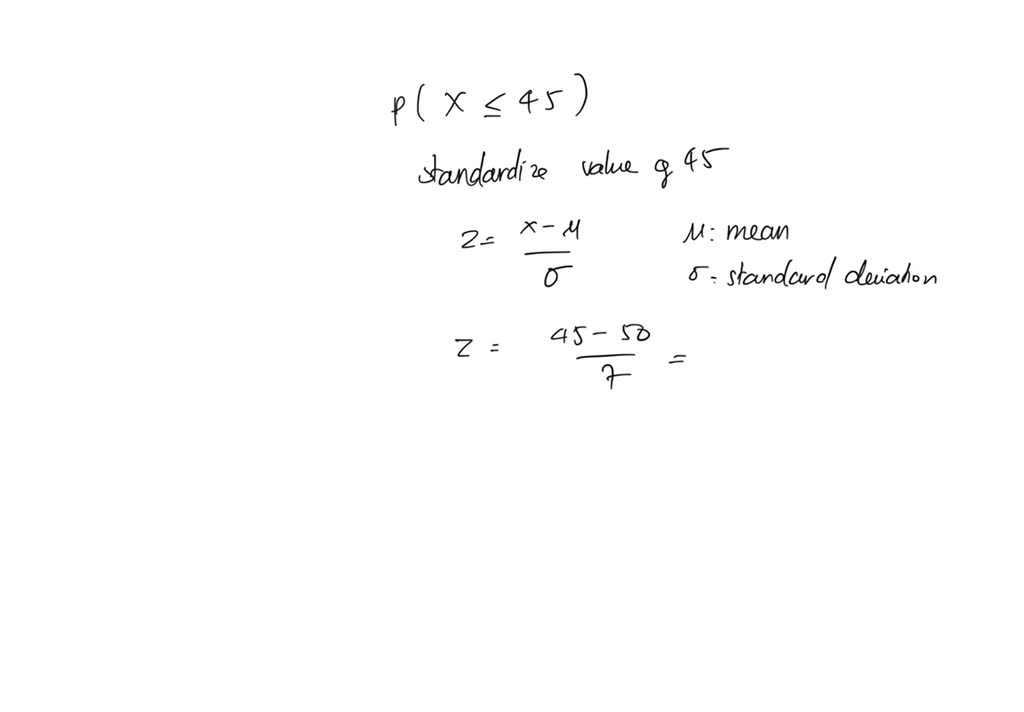 P( X ≤ 45 )
standardize value of 45
Z = (x - μ) / σ μ: mean
σ: standard deviation
Z = (45 - 50) / 7 =